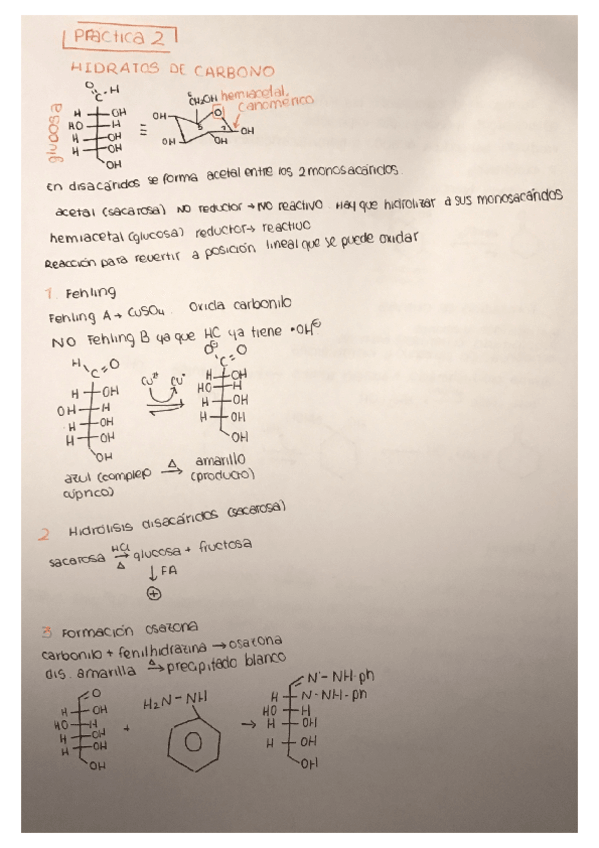 PRACTICA 2
HIDRATOS DE CARBONO
glucosa
O
C-H
H OH
HO H
H OH
H OH
OH
≡
6
CH2OH
hemiacetal.
C anomérico
OH
O
5
1
OH
OH
OH
En disacáridos se forma acetal entre los 2 monosacáridos.
acetal (sacarosa) NO reductor → NO reactivo. Hay que hidrolizar a sus monosacáridos
hemiacetal (glucosa) reductor → reactivo
Reacción para revertir a posición lineal que se puede oxidar
1. Fehling
Fehling A → CuSO4. Oxida carbonilo
NO Fehling B ya que HC ya tiene ·OH⊖
H C=O
H OH
OH H
H OH
H OH
OH
Cu2+ Cu+
O⊖ C=O
H OH
HO H
H OH
H OH
OH
azul (complejo cúprico) Δ→ amarillo (producto)
2 Hidrólisis disacáridos (sacarosa)
sacarosa HCl Δ→ glucosa + fructosa
↓ FA
⊕
3 Formación osazona
carbonilo + fenilhidrazina → osazona
dis. amarilla Δ→ precipitado blanco
O
H OH
HO H
H OH
H OH
OH
+
H2N-NH
→
N-NH-ph
H N-NH-ph
HO H
H OH
H OH
OH